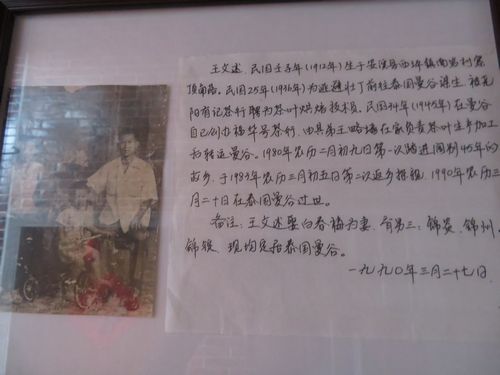 王文述、民国壬子年(1912年)生于安溪县西坪镇南岩村
顶南岩。民国25年(1936年)为逃避壮丁前往泰国曼谷谋生、被
阳有记茶行聘为茶叶焙烤技术员。民国34年(1945年)在曼谷
自己创办福华号茶行、由其弟王略墙在家负责茶叶生产加工
后转运曼谷。1980年农历二月初九日第一次踏进阔别45年的
故乡、于1985年农历三月初五日第二次返乡探亲、1990年农历三
月二十日在泰国曼谷过世。
备注:王文述娶白春梅为妻、育男三:锦炭、锦州、
锦骏、现均定居泰国曼谷。
一九九〇年三月二十七日